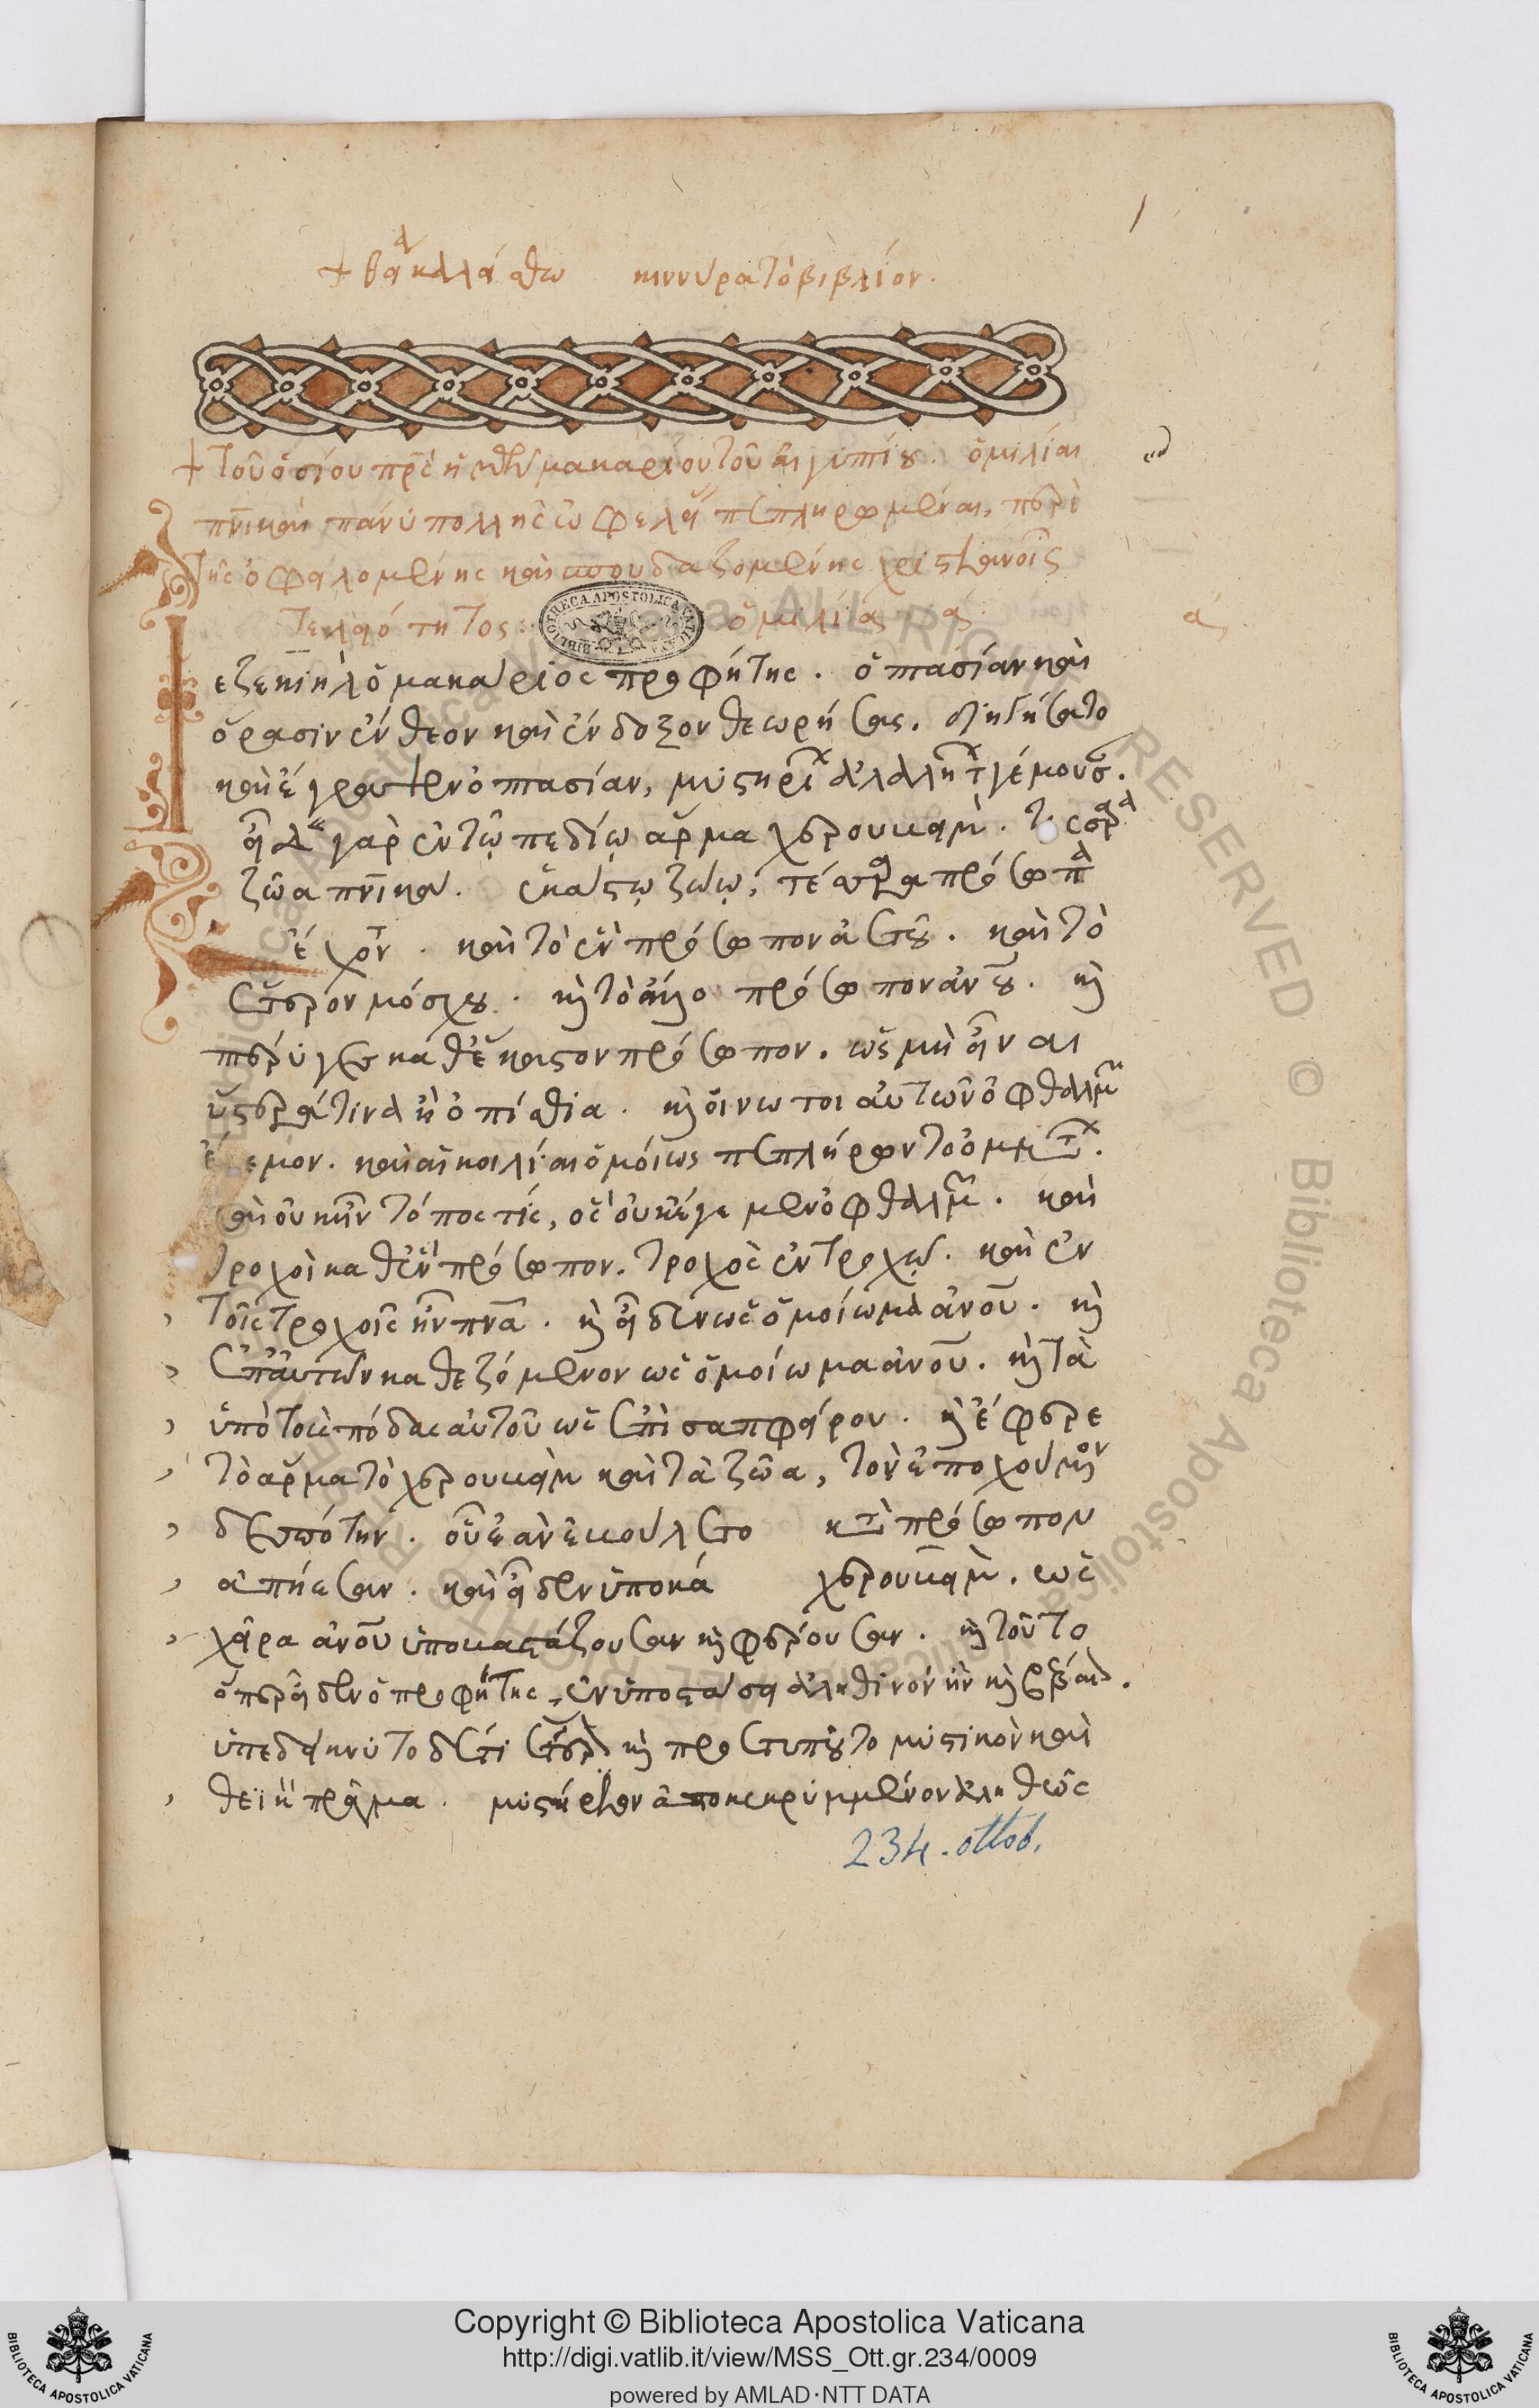 1
τοῦ ὁσίου πρς ἡμῶν μακαρίου τοῦ αἰγυπτίου. ὁμιλίαι
πνικαὶ πάνυ πολλῆς ὠφελείας πεπληρωμέναι, περὶ
τῆς ὀφειλομένης καὶ σπουδαζομένης χριστιανοῖς
τελειότητος: ὁμιλία α
α
εζεκιὴλ ὁ μακάριος προφήτης. ὀπτασίαν καὶ
ὅρασιν ἔνθεον καὶ ἔνδοξον θεωρήσας. διηγήσατο
καὶ ἔγραψεν ὀπτασίαν, μυστηρίων ἀλαλήτων γέμουσαν.
εἶδε γὰρ ἐν τῷ πεδίῳ ἅρμα χερουβίμ. τέσσερα
ζῶα πνικά. ἑκάστῳ ζώῳ, τέσσαρα πρόσωπα
ἔχον. καὶ τὸ ἓν πρόσωπον ἀετοῦ. καὶ τὸ
ἕτερον μόσχου. καὶ τὸ ἄλλο πρόσωπον ἀνου. καὶ
πτέρυγες καθ' ἕκαστον πρόσωπον. ὡς μὴ εἶναι
ὕστερά τινα ἢ ὀπίσθια. καὶ οἱ νῶτοι αὐτῶν ὀφθαλμῶν
ἔγεμον. καὶ αἱ κοιλίαι ὁμοίως πεπλήρωντο ὀμμάτων.
καὶ οὐκ ἦν τόπος τίς, ὃς οὐκ ἔγεμεν ὀφθαλμῶν. καὶ
τροχοὶ καθ' ἓν πρόσωπον. τροχὸς ἐν τροχῷ. καὶ ἐν
τοῖς τροχοῖς ἦν πνα. καὶ εἶδεν ὡς ὁμοίωμα ἀνου. καὶ
ἐπ' αὐτῶν καθεζόμενον ὡς ὁμοίωμα ἀνου. καὶ τὰ
ὑπὸ τοὺς πόδας αὐτοῦ ὡς ἐπὶ σαπφείρου. καὶ ἔφερε
τὸ ἅρμα τὸ χερουβὶμ καὶ τὰ ζῶα, τὸν ἐποχούμενον
δεσπότην. οὗ ἐὰν ἐβούλετο κατὰ πρόσωπον
ἀπήεσαν. καὶ εἶδεν ὑποκά χερουβίμ. ὡς
χεῖρα ἀνου ὑποβαστάζουσαν καὶ φέρουσαν. καὶ τοῦτο
ὅπερ εἶδεν ὁ προφήτης, ἐν ὑποστάσει ἀληθινὸν ἦν καὶ βέβαιον.
ὑπεδείκνυτο δέ τι ἕτερον καὶ προετυποῦτο μυστικὸν καὶ
θεϊκὸν πρᾶγμα. μυστήριον ἀποκεκρυμμένον ἀληθῶς
234. ottob.
BIBLIOTHECA APOSTOLICA VATICANA
Copyright © Biblioteca Apostolica Vaticana
http://digi.vatlib.it/view/MSS_Ott.gr.234/0009
powered by AMLAD·NTT DATA